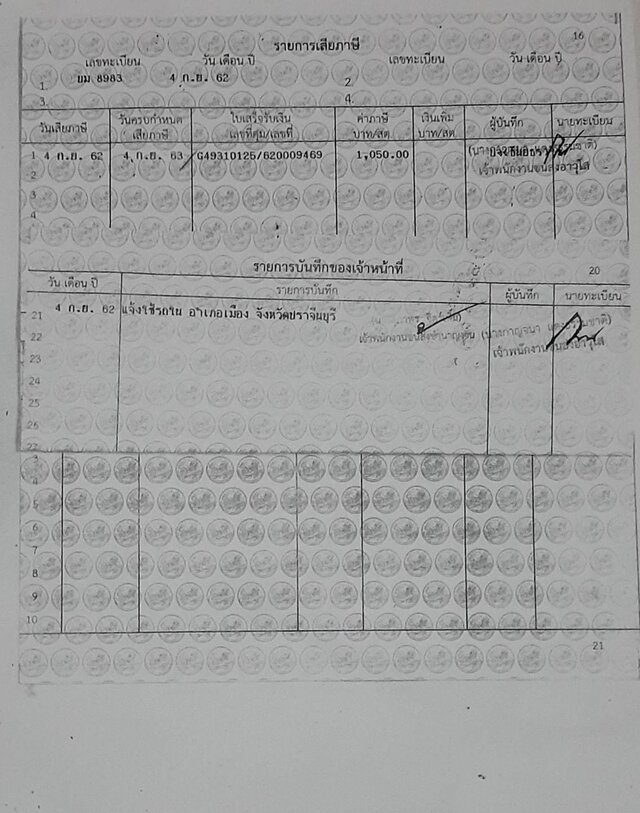 16
รายการเสียภาษี
เลขทะเบียน วัน เดือน ปี เลขทะเบียน วัน เดือน ปี
1. ยม 8983 4 ก.ย. 62 2.
3. 4.
วันเสียภาษี วันครบกำหนดเสียภาษี ใบเสร็จรับเงิน เลขที่คุม/เลขที่ ค่าภาษี บาท/สต. เงินเพิ่ม บาท/สต. ผู้บันทึก นายทะเบียน
1 4 ก.ย. 62 4 ก.ย. 63 G49310125/620009469 1,050.00
เจ้าพนักงานขนส่งอาวุโส
2
3
4
รายการบันทึกของเจ้าหน้าที่ 20
วัน เดือน ปี รายการบันทึก ผู้บันทึก นายทะเบียน
21 4 ก.ย. 62 แจ้งใช้รถใน อำเภอเมือง จังหวัดปราจีนบุรี
เจ้าพนักงานขนส่งชำนาญงาน (นางกาญจนา
22 เจ้าพนักงานขนส่งอาวุโส
23
24
25
26
27
3
4
5
6
7
8
9
10
21